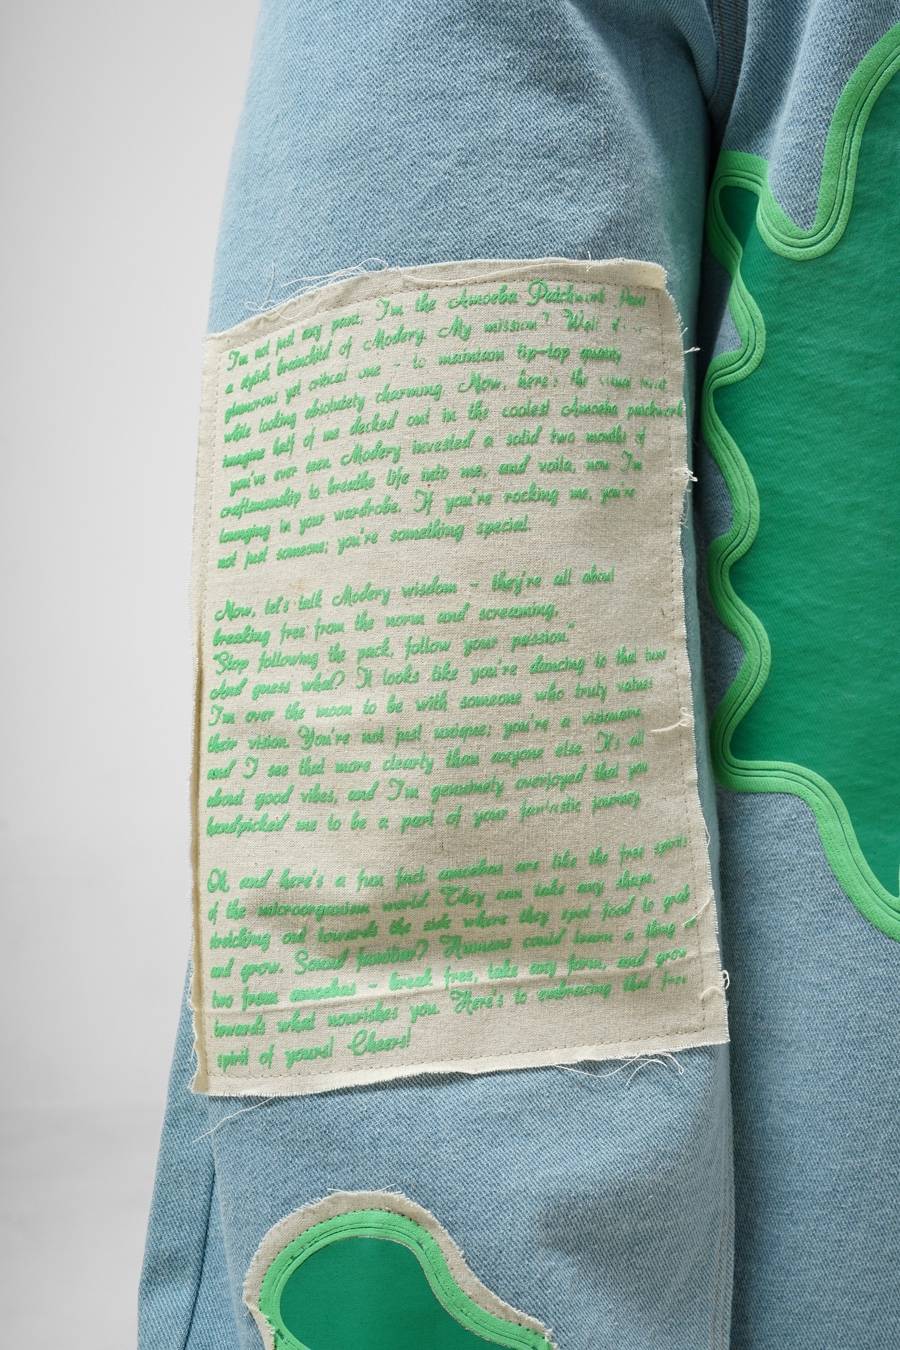 I'm not just any pant, I'm the Amoeba Patchwork Pant
a stylish brainchild of Modery. My mission? Well
glamorous yet critical one - to maintain tip-top quality
while looking absolutely charming. Now, here's the
imagine half of me decked out in the coolest Amoeba patchwork
you've ever seen. Modery invested a solid two months of
craftsmanship to breathe life into me, and voila, now I'm
lounging in your wardrobe. If you're rocking me, you're
not just someone; you're something special.
Now, let's talk Modery wisdom - they're all about
breaking free from the norm and screaming,
"Stop following the pack, follow your passion."
And guess what? It looks like you're dancing to that tune
I'm over the moon to be with someone who truly values
their vision. You're not just unique; you're a visionary
and I see that more clearly than anyone else. It's all
about good vibes, and I'm genuinely overjoyed that you
handpicked me to be a part of your fantastic journey
Oh and here's a fun fact amoebas are like the free spirits
of the microorganism world. They can take any shape,
stretching out towards the side where they spot food to grab
and grow. Sound familiar? Humans could learn a thing or
two from amoebas - break free, take any form, and grow
towards what nourishes you. Here's to embracing that free
spirit of yours! Cheers!